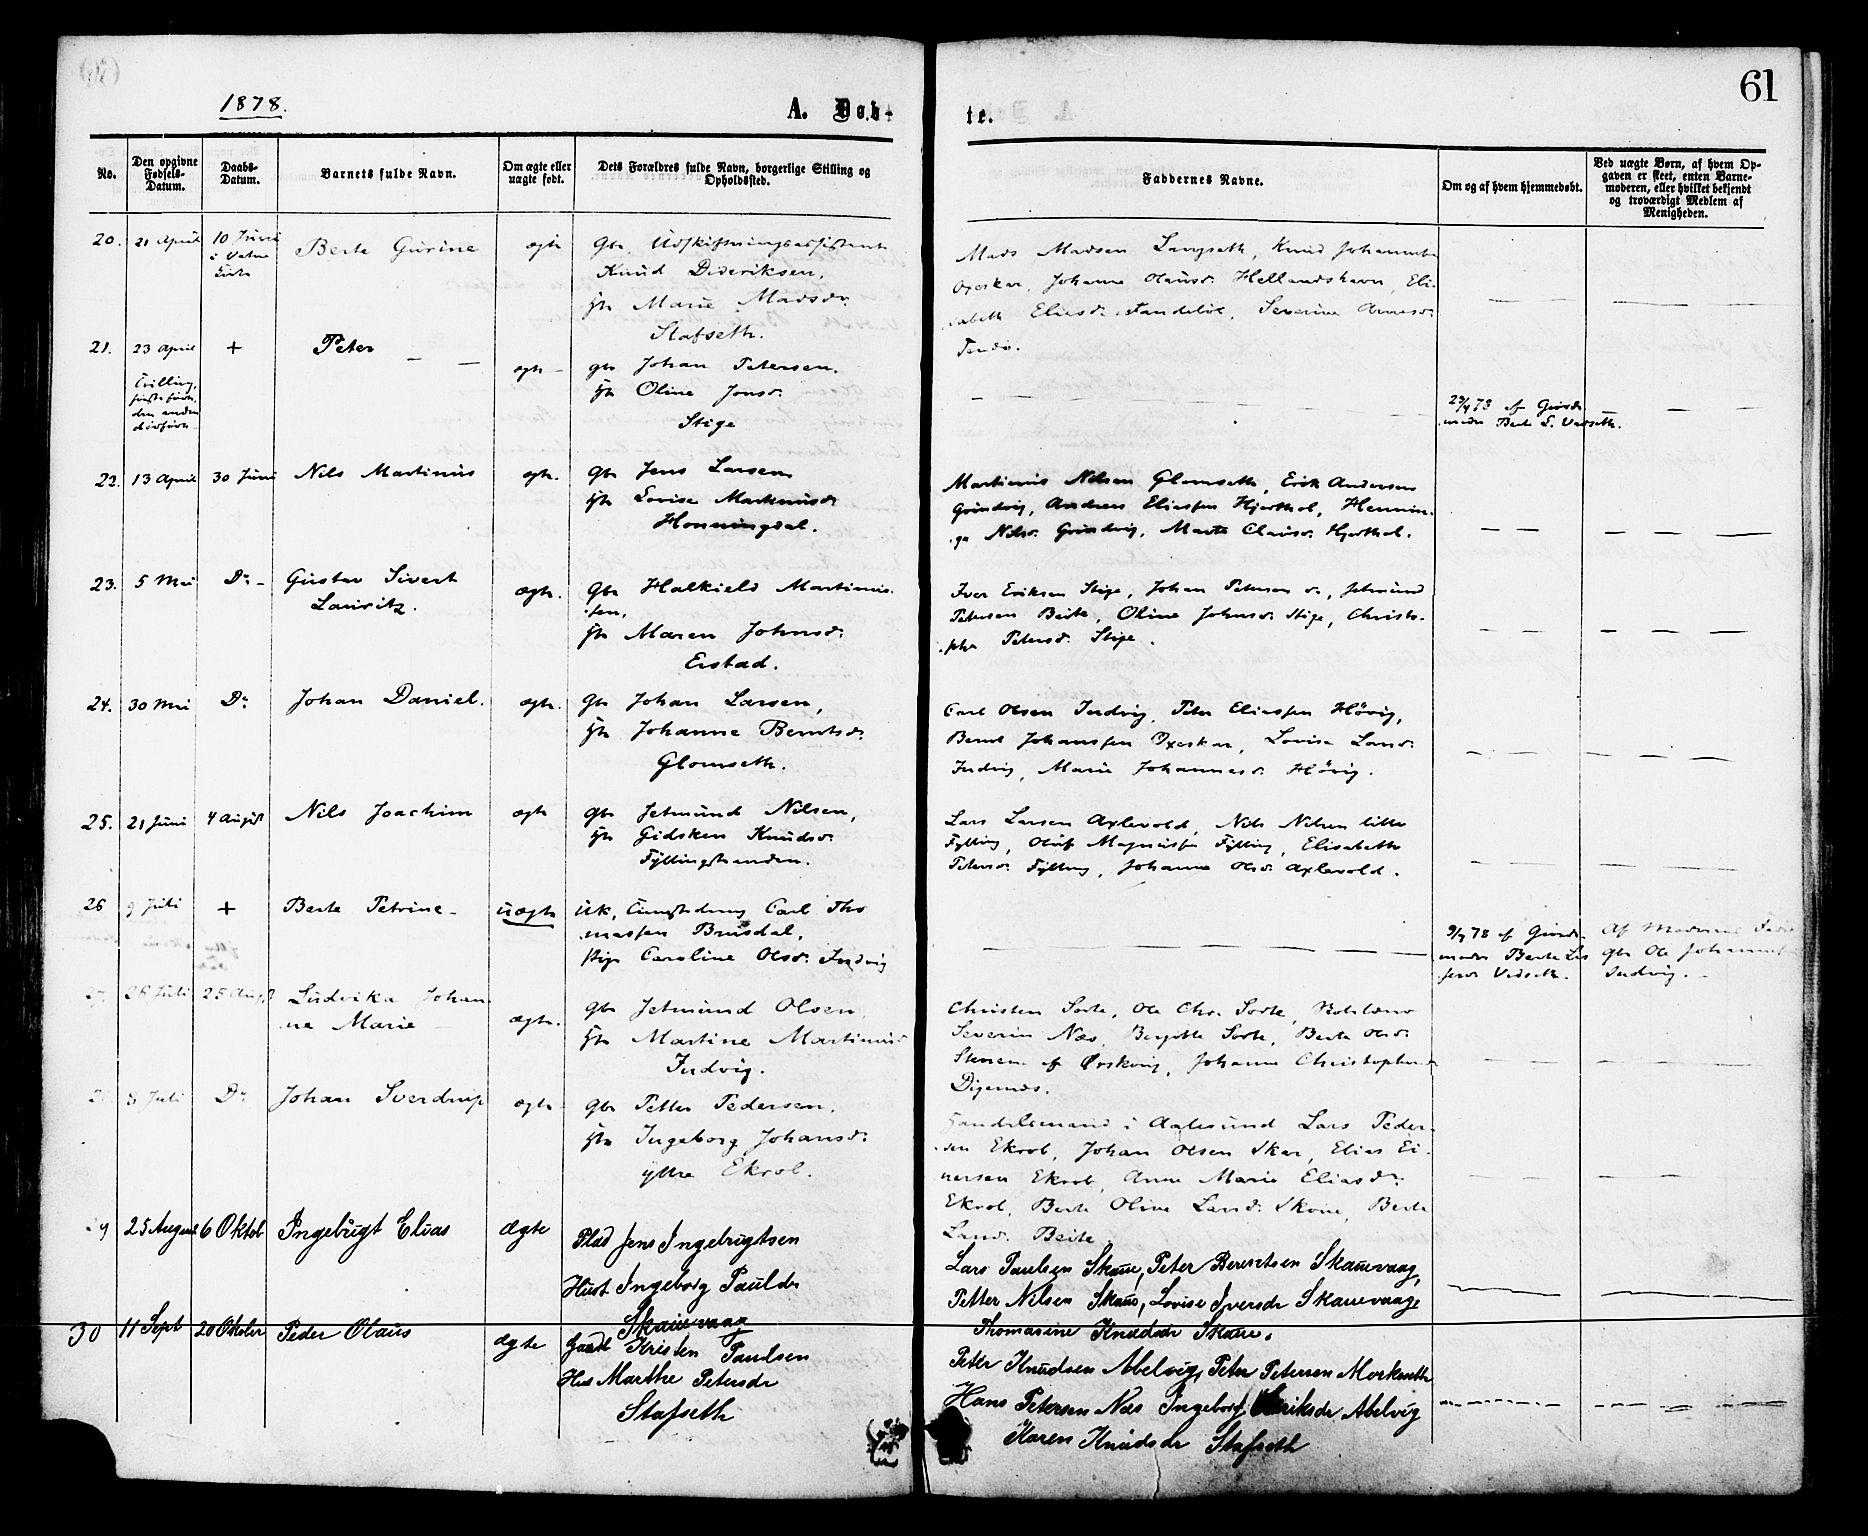 61
1878.
A. Døb-
te.
No.
Den opgivne Fødsels-Datum.
Daabs-Datum.
Barnets fulde Navn.
Om ægte eller uægte født.
Dets Forældres fulde Navn, borgerlige Stilling og Opholdssted.
Faddernes Navne.
Om og af hvem hjemmedøbt.
Ved uægte Børn, af hvem Op-
gaven er skeet, enten Barne-
moderen, eller hvilket bekjendt
og troværdigt Medlem af
Menigheden.
20. 21 April 10 Juni Berte Gurine ægte Gbr. Udskiftningsassistent
i Vatne Kirke
Knud Dideriksen,
Marie Madsdr.
Stafseth.
Mads Madsen Langseth, Knud Johannes
Oxeskar, Johanne Olausdr. Hellandshavn, Eli-
sabeth Eliasdr. Tandeløe, Severine
21. 23 April + Peter ægte Gbr Johan Petersen.
Tvilling,
første født,
den anden
dødfødt
Oline Jonsdr.
Stige
af Gjorde-
moder Berte L. Vadseth.
22. 13 April 30 Juni Nils Martinus ægte. Gbr Jens Larsen
Lovise Martinusdr
Honningdal.
Martinus Nilsen Glomseth, Erik Andersen
Grindvig, Andreas Eliassen Hjorthol, Hennin-
ge Nilsdr. Grindvig, Marte Clausdr. Hjorthol.
23. 5 Mai Do - Gustav Sivert ægte. Gbr Halkield Martinus-
Lauritz.
sen,
Maren Johnsdr.
Erstad.
Iver Eriksen Stige, Johan Petersen do, Jetmund
Petersen Beite, Oline Johnsdr. Stige, Christo-
phe Petersdr. Stige.
24. 30 Mai Do Johan Daniel. ægte. Gbr Johan Larsen,
Johanne Berntsdr.
Glomseth.
Carl Olsen Indvig, Peter Eliassen Høvig,
Bernt Johanssen Oxeskar, Lovise Larsdr.
Indvig, Marie Johannesdr. Høvig.
25. 21 Juni 4 August Nils Joachim ægte Gbr Jetmund Nilsen,
Gidsken Knudsdr.
Fyllingstranden.
Lars Larsen Axlevold, Nils Nilsen lille
Fylling, Oluf Magnussen Fylling, Elisabeth
Petersdr. Fylling, Johanne Olsdr. Axlevold.
26 9 Juli + Berte Petrine - uægte Uk, Carl Tho
massen Brusdal,
Pige Caroline Olsdr. Indvig
9/7 78 af Gjorde-
moder Berte Las
sesdr Vadseth.
Af Moderens Fader
gbr Ole Johannes
Indvig.
27. 26 Juli 25 August Ludvika Johan- ægte. Gbr Jetmund Olsen
ne Marie
Martine Martinusdr
Indvig.
Christen Sorte, Ole Chr. Sorte,
Severin Næs, Bergitte Sorte, Berte Olsdr.
af Ørskoug, Johanne Christophersdr
Digernæs.
8 Juli Do Johan Sverdrup ægte Gbr Petter Pedersen.
Ingeborg Johansdr.
ytre Ekrol.
Handelsmand i Aalesund Lars Peder-
sen Ekrol, Johan Olsen Skar, Elias Ei-
nersen Ekrol, Anne Marie Eliasdr.
Ekrol, Berte Oline Larsdr. Skoue, Berte
Larsdr. Beite.
29 25 August 6 Oktob Ingebrigt Elias Ægte Plads Jens Ingebrigtsen
Hust Ingeborg Paulsdr
Skauevaag
Lars Paulsen Skaue, Peter Berentsen Skauevaag,
Petter Nilsen Skaue, Lovise Iversdr Skauevaage
Thomasine Knudsdr Skaue.
30 11 Sept 20 Oktober Peder Olaus ægte Gaardb Kristen Paulsen
Hus Marthe Petersdr
Stafseth
Peter Knudsen Abelvig, Peter Petersen Morkeseth
Hans Petersen Næs Ingeborg Eriksdr Abelvig
Karen Knudsdr Stafseth